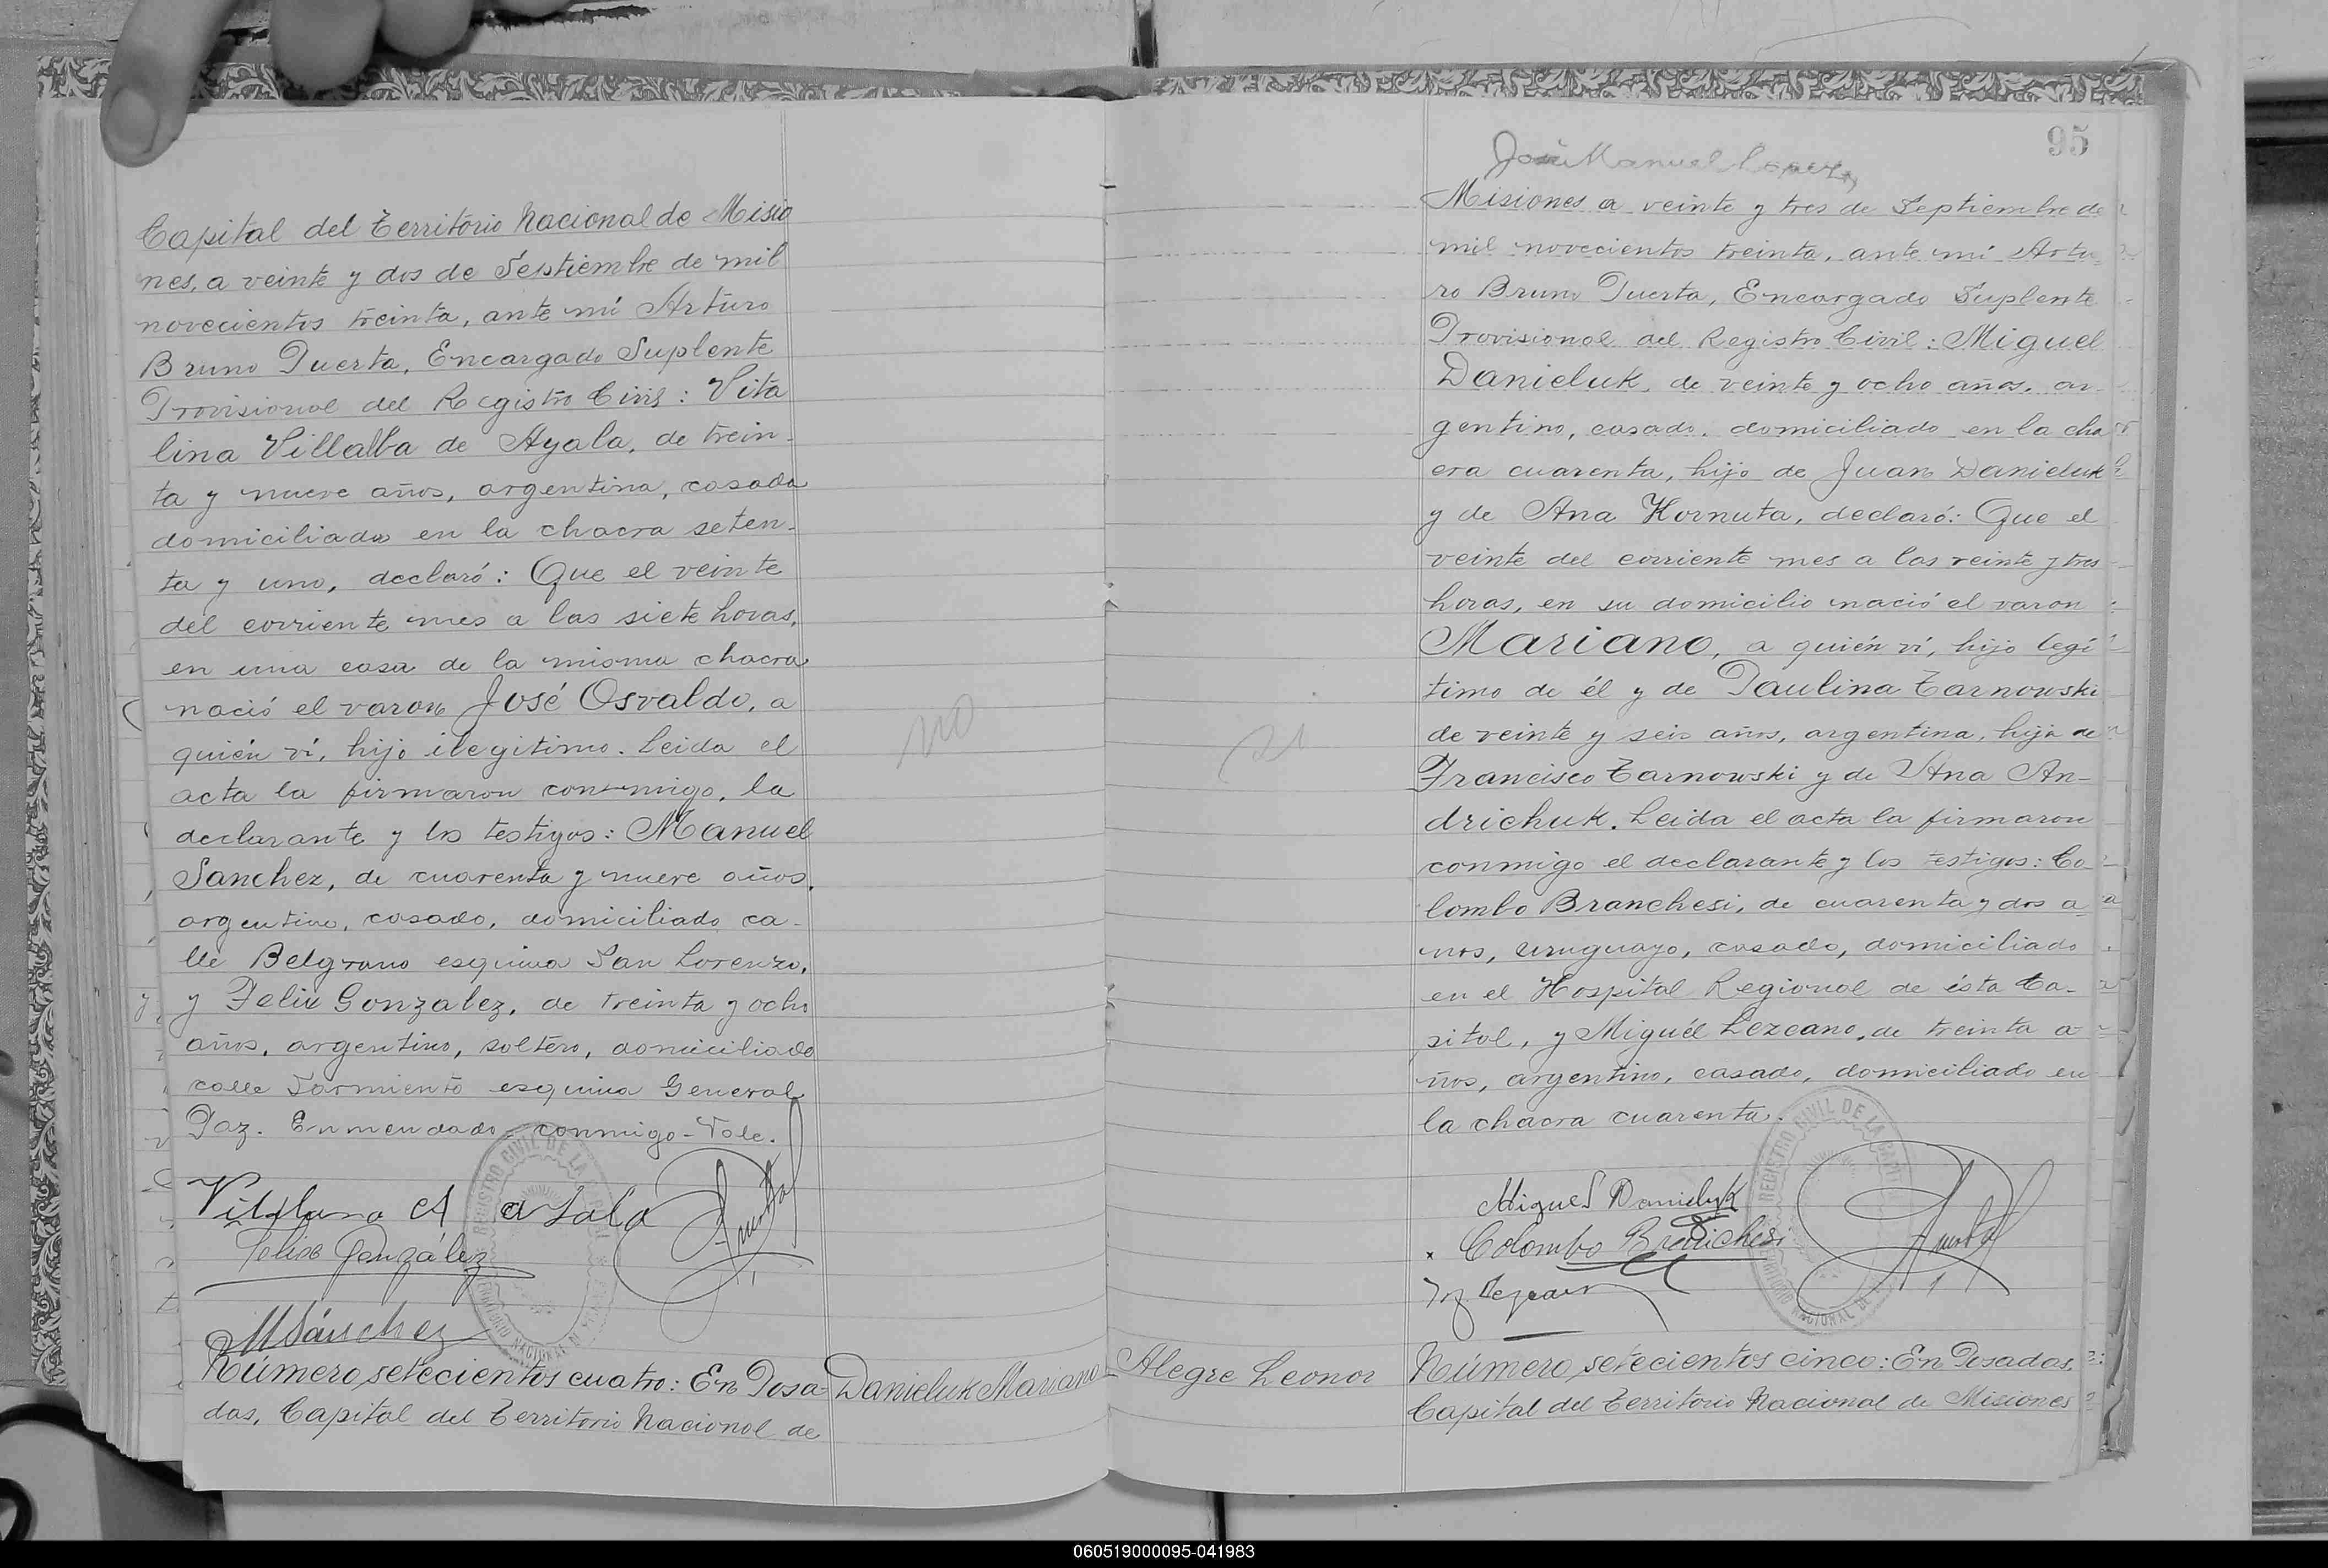 Capital del Territorio Nacional de Misio
nes, a veinte y dos de Septiembre de mil
novecientos treinta, ante mí Arturo
Bruno Puerta, Encargado Suplente
Provisional del Registro Civil: Vita
lina Villalba de Ayala, de trein-
ta y nueve años, argentina, casada
domiciliada en la chacra seten-
ta y uno, declaró: Que el veinte
del corriente mes a las siete horas,
en una casa de la misma chacra
nació el varon José Osvaldo, a
quién ví, hijo ilegitimo. Leida el
acta la firmaron conmigo, la
declarante y los testigos: Manuel
Sanchez, de cuarenta y nueve años,
argentino, casado, domiciliado ca-
lle Belgrano esquina San Lorenzo,
y Felix Gonzalez, de treinta y ocho
años, argentino, soltero, domiciliado
calle Sarmiento esquina General
Paz. Enmendado-conmigo-Vale.
Felix González
MSánchez
Número setecientos cuatro: En Posa-
das, Capital del Territorio Nacional de
Danieluk Mariano
no
95
José Manuel Lopez
Misiones a veinte y tres de Septiembre de
mil novecientos treinta, ante mí Artu-
ro Bruno Puerta, Encargado Suplente
Provisional del Registro Civil: Miguel
Danieluk, de veinte y ocho años, ar-
gentino, casado, domiciliado en la cha
cra cuarenta, hijo de Juan Danieluk
y de Ana Hornuta, declaró: Que el
veinte del corriente mes a las veinte y tres
horas, en su domicilio nació el varon
Mariano, a quién ví, hijo legí
timo de él y de Paulina Tarnowski
de veinte y seis años, argentina, hija de
Francisco Tarnowski y de Ana An-
drichuk. Leida el acta la firmaron
conmigo el declarante y los testigos: Co-
lombo Branchesi, de cuarenta y dos a-
ños, uruguayo, casado, domiciliado
en el Hospital Regional de ésta Ca-
pital, y Miguél Lezcano, de treinta a-
ños, argentino, casado, domiciliado en
la chacra cuarenta.
REGISTRO CIVIL DE LA CAPITAL
Miguel Danieluk
Colombo Branchesi
Alegre Leonor
Número setecientos cinco: En Posadas,
Capital del Territorio Nacional de Misiones
060519000095-041983